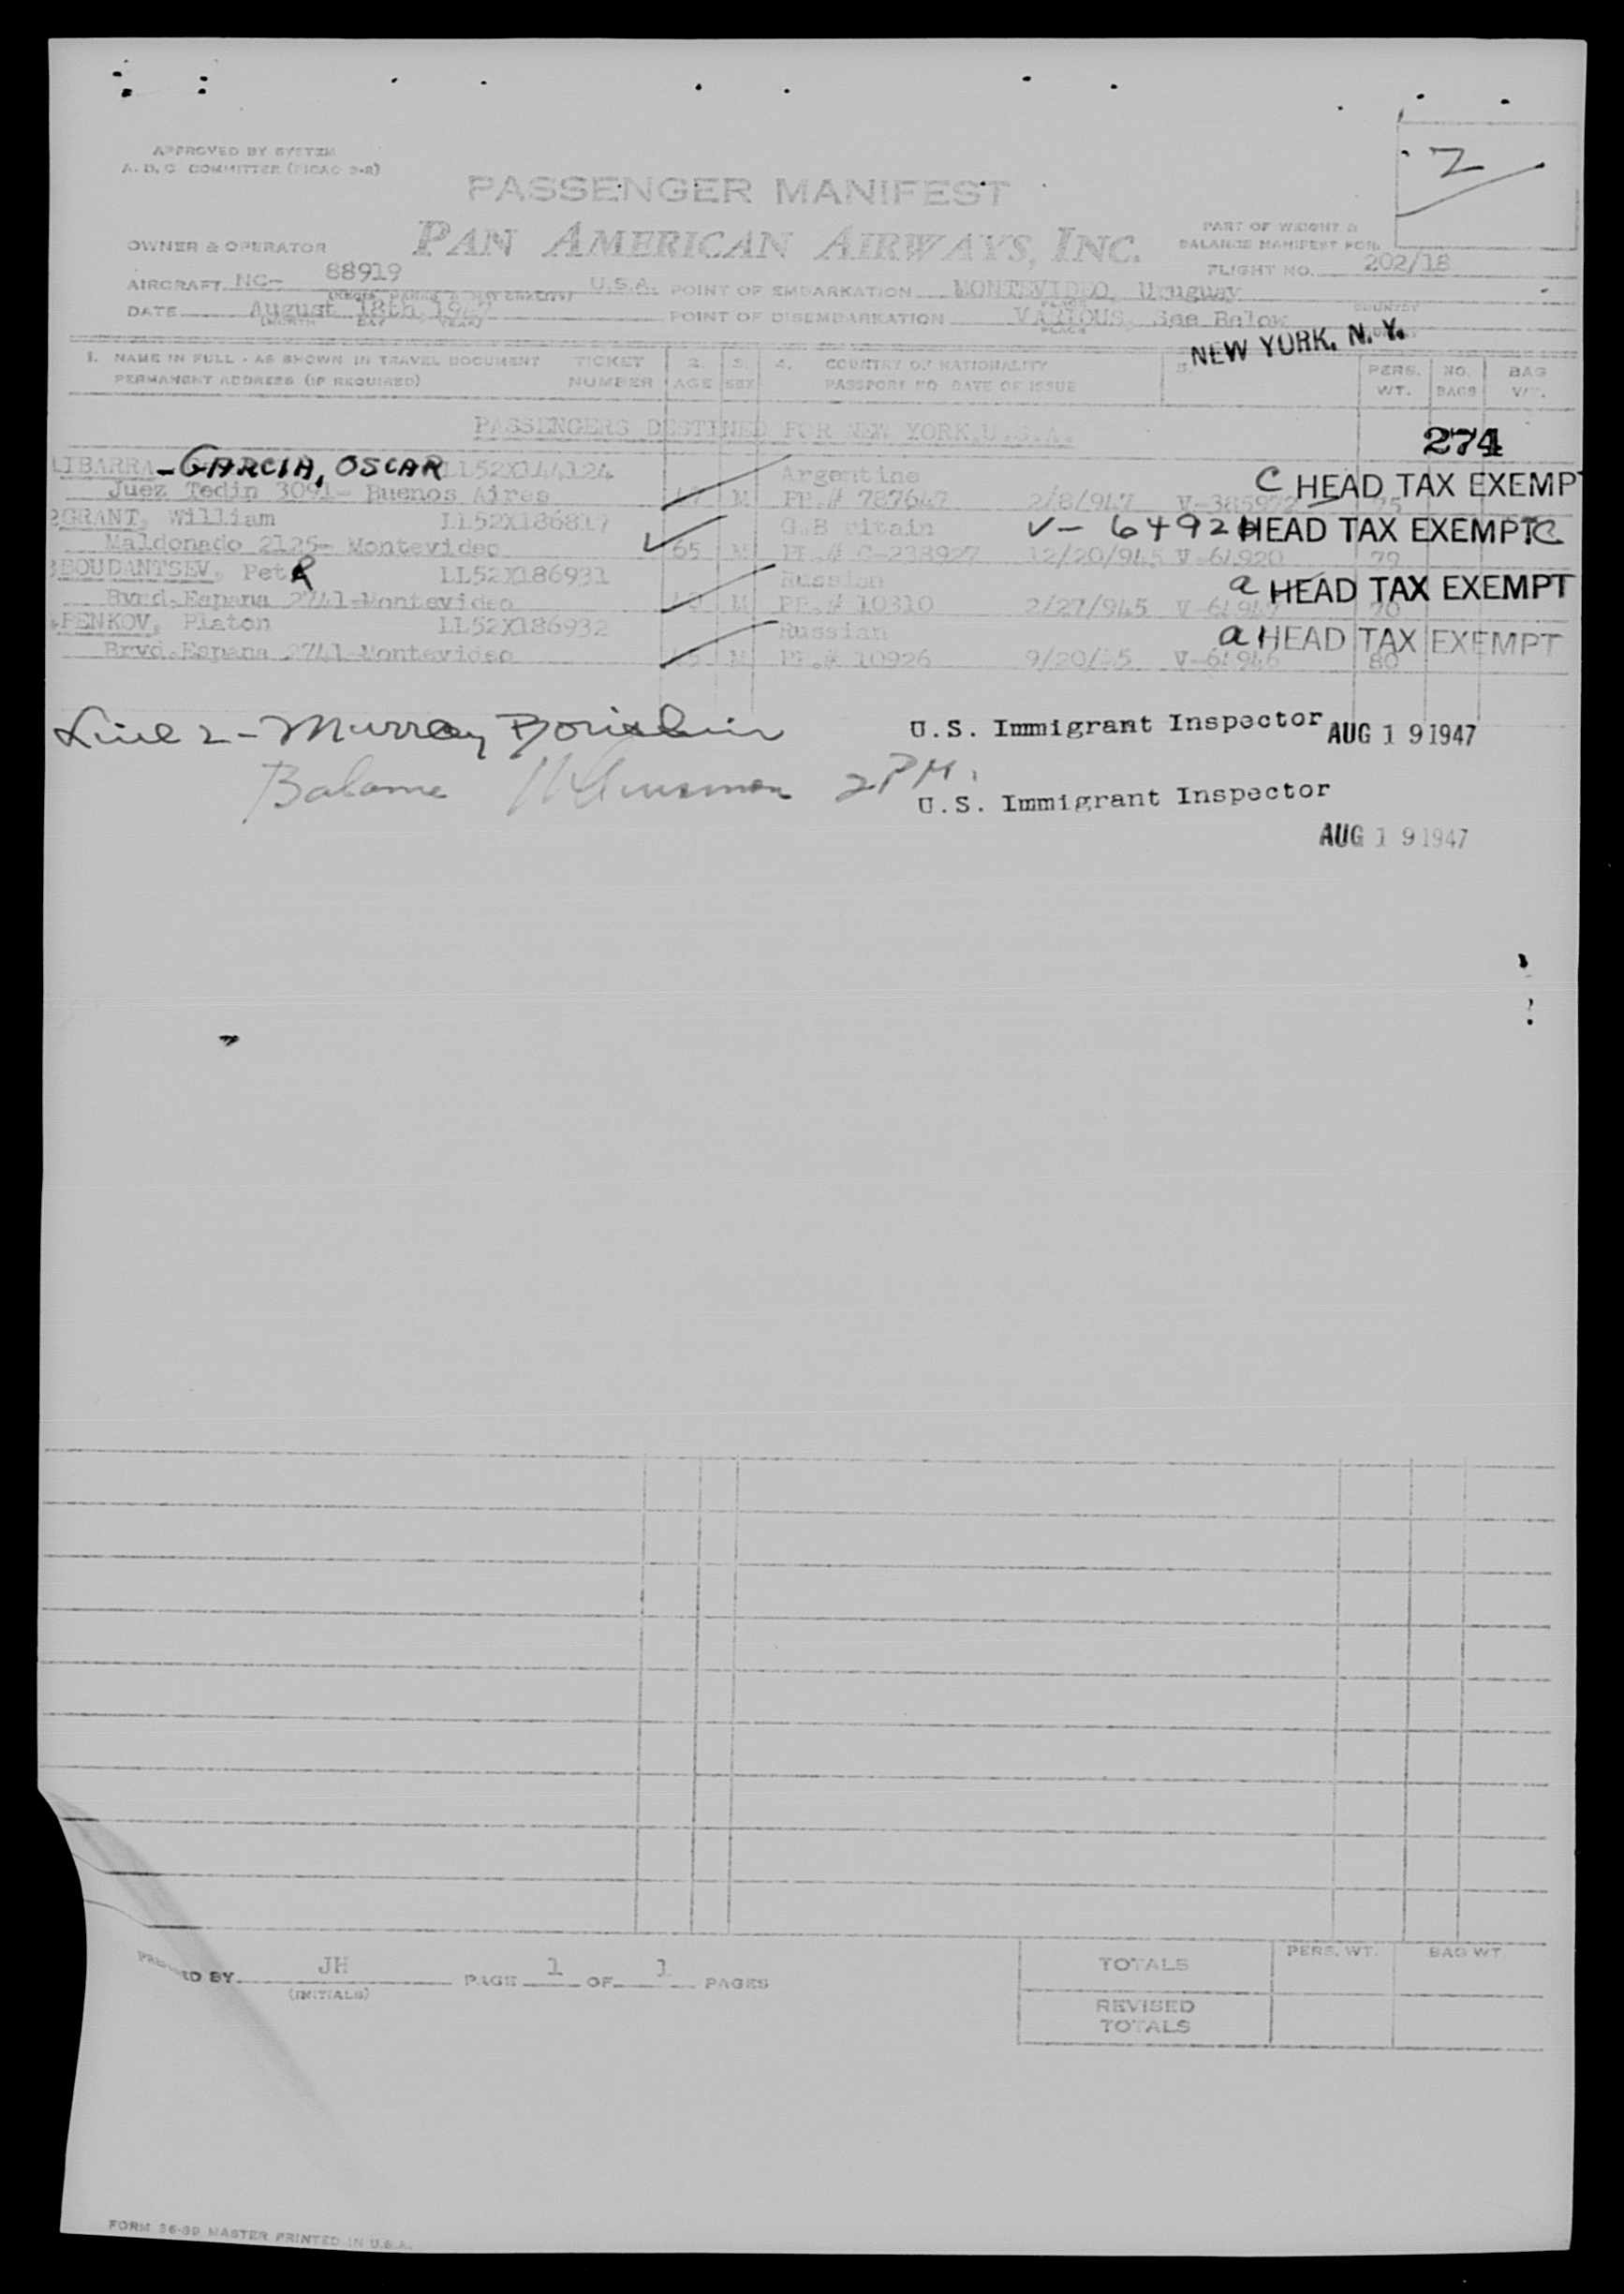 APPROVED BY SYSTEM
A. D. C. COMMITTEE (PICAO 2-2)
2
PASSENGER MANIFEST
PAN AMERICAN AIRWAYS, INC.
PART OF WEIGHT &
BALANCE MANIFEST FOR
OWNER & OPERATOR
FLIGHT NO. 202/18
AIRCRAFT NC- 88919 U.S.A. POINT OF EMBARKATION MONTEVIDEO, Uruguay
DATE August 18th, 1947 POINT OF DISEMBARKATION VARIOUS, See Below
(MONTH DAY YEAR) PLACE COUNTRY
NEW YORK, N. Y.
1. NAME IN FULL - AS SHOWN IN TRAVEL DOCUMENT TICKET 2. 3. 4. COUNTRY OF NATIONALITY 5. PERS. NO. BAG
PERMANENT ADDRESS (IF REQUIRED) NUMBER AGE SEX PASSPORT NO. DATE OF ISSUE WT. BAGS WT.
PASSENGERS DESTINED FOR NEW YORK, U.S.A.
274
IBARRA - GARCIA, OSCAR LL52X144124 Argentine C HEAD TAX EXEMPT
Juez Tedin 3091- Buenos Aires M PP.# 787647 2/8/947 V-385972 75
GRANT, William LL52X186817 G.B itain V- 6492 HEAD TAX EXEMPT C
Maldonado 2125- Montevideo 65 M PP.# C-238927 12/20/945 V-64920 79
BOUDANTSEV, PetR LL52X186931 Russian a HEAD TAX EXEMPT
Bvrd.Espana 2741-Montevideo M PP.# 10310 2/27/945 V-64947 70
FENKOV, Platon LL52X186932 Russian a HEAD TAX EXEMPT
Brvd.Espana 2741-Montevideo M PP.# 10926 9/20/45 V-64946 80
Line 2 - Murray U.S. Immigrant Inspector AUG 19 1947
Balance 2 PM. U.S. Immigrant Inspector
AUG 19 1947
PREPARED BY JH PAGE 1 OF 1 PAGES
(INITIALS)
TOTALS PERS. WT. BAG WT.
REVISED
TOTALS
FORM 36-39 MASTER PRINTED IN U.S.A.